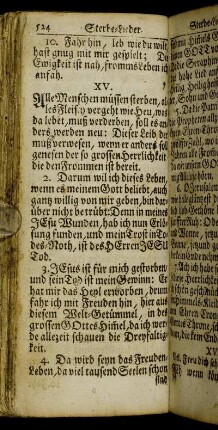 524 Sterbe-Lieder.
10. Fahr hin, leb wie du wilt,
hast gnug mit mir gespielt; Die
Ewigkeit ist nah, fromms Leben ich
anfah.
XV.
Alle Menschen müssen sterben, al-
les Fleisch vergeht wie Heu, was
da lebet, muß verderben, soll es an-
ders werden neu: Dieser Leib der
muß verwesen, wenn er anders soll
genesen der so grossen Herrlichkeit
die den Frommen ist bereit.
2. Darum will ich dieses Leben,
wenn es meinem Gott beliebt, auch
gantz willig von mir geben, bin dar-
über nicht betrübt: Denn in meines
JEsu Wunden, hab ich nun Erlö-
sung funden, und mein Trost in To-
des-Noth, ist des HErren JESU
Tod.
3. JEsus ist für mich gestorben,
und sein Tod ist mein Gewinn: Er
hat mir das Heyl erworben, drum
fahr ich mit Freuden hin, hier aus
diesem Welt-Getümmel, in des
grossen GOttes Himel, da ich wer-
de allezeit schauen die Dreyfaltig-
keit.
4. Da wird seyn das Freuden-
Leben, da viel tausend Seelen schon
sind